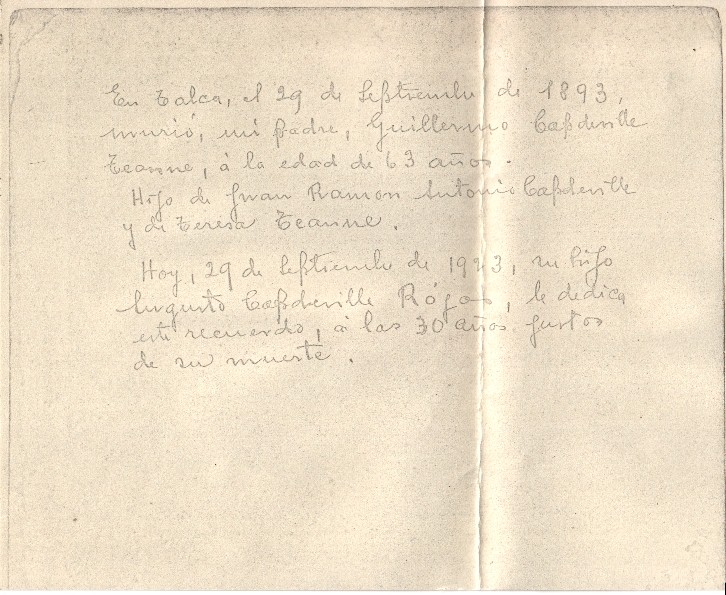 En Talca, el 29 de Septiembre de 1893,
murió, mi padre, Guillermo Capdeville
Teanne, á la edad de 63 años.
Hijo de Juan Ramon Antonio Capdeville
y de Teresa Teanne.
Hoy, 29 de Septiembre de 1923, su hijo
Augusto Capdeville Rójas, le dedica
este recuerdo, á las 30 años justos
de su muerte.